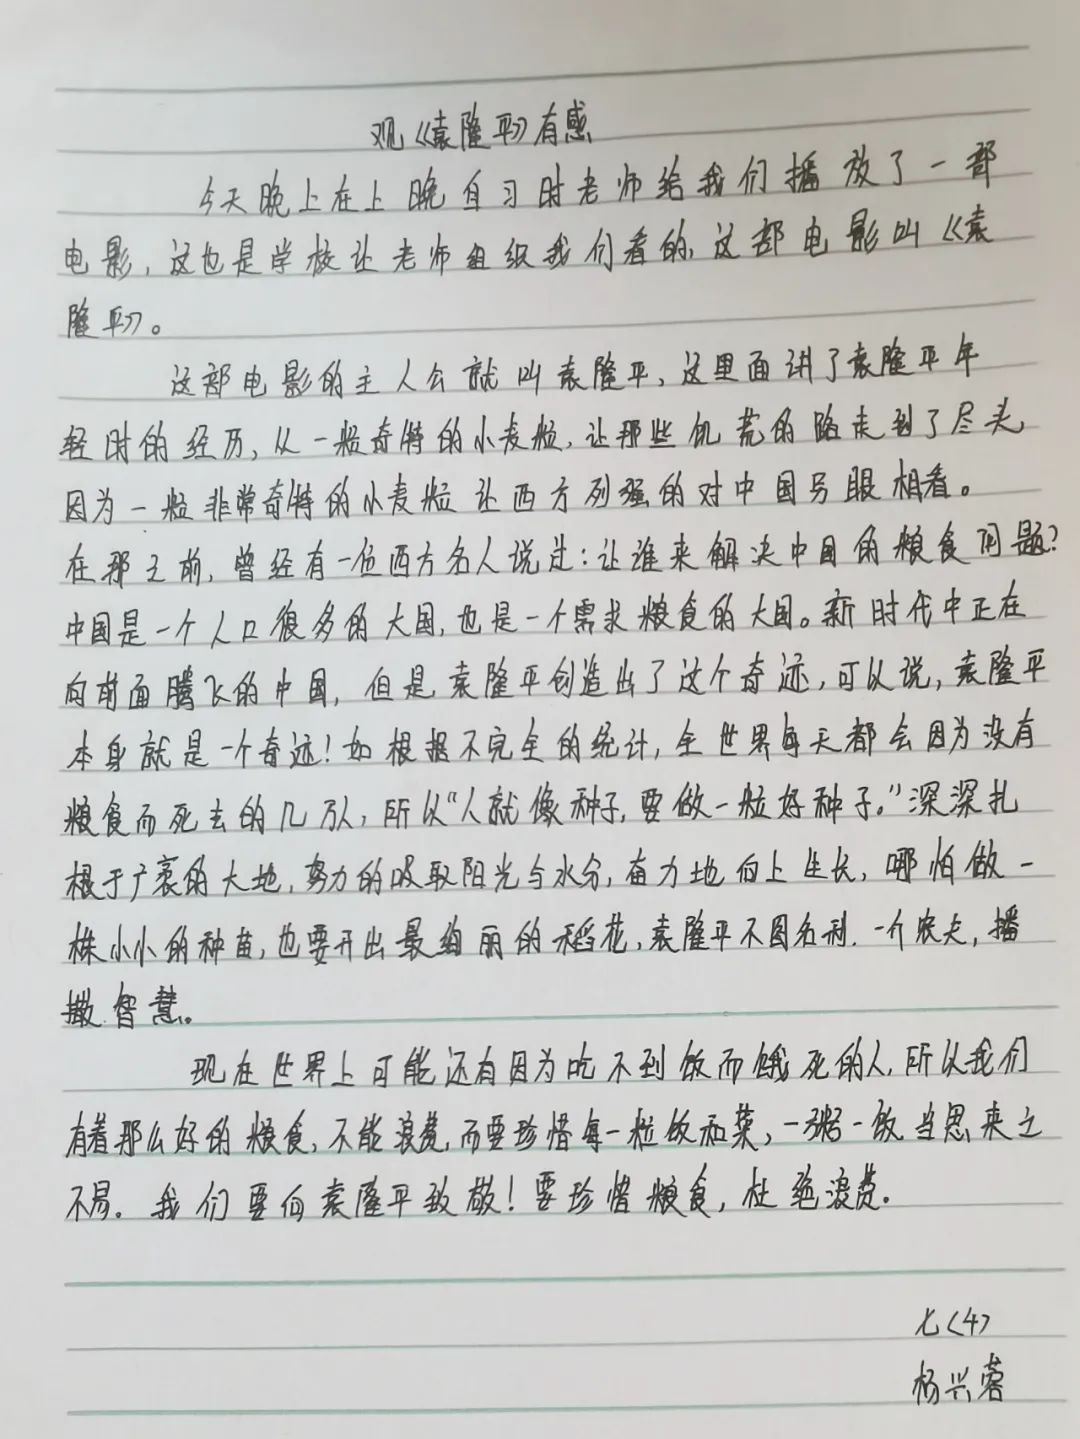 观《袁隆平》有感
今天晚上在上晚自习时老师给我们播放了一部
电影，这也是学校让老师组织我们看的，这部电影叫《袁
隆平》。
这部电影的主人公就叫袁隆平，这里面讲了袁隆平年
轻时的经历，从一粒奇特的小麦粒，让那些饥荒的路走到了尽头，
因为一粒非常奇特的小麦粒让西方列强的对中国另眼相看。
在那之前，曾经有一位西方名人说过：让谁来解决中国的粮食问题？
中国是一个人口很多的大国，也是一个需求粮食的大国。新时代中正在
向前面腾飞的中国，但是袁隆平创造出了这个奇迹，可以说，袁隆平
本身就是一个奇迹！如根据不完全的统计，全世界每天都会因为没有
粮食而死去的几万人，所以“人就像种子，要做一粒好种子。”深深扎
根于广袤的大地，努力的吸取阳光与水分，奋力地向上生长，哪怕做一
株小小的种苗，也要开出最绚丽的稻花，袁隆平不图名利，一介农夫，播
撒智慧。
现在世界上可能还有因为吃不到饭而饿死的人，所以我们
有着那么好的粮食，不能浪费，而要珍惜每一粒饭和菜，一粥一饭当思来之
不易。我们要向袁隆平致敬！要珍惜粮食，杜绝浪费。
七〈4〉
杨兴蓉